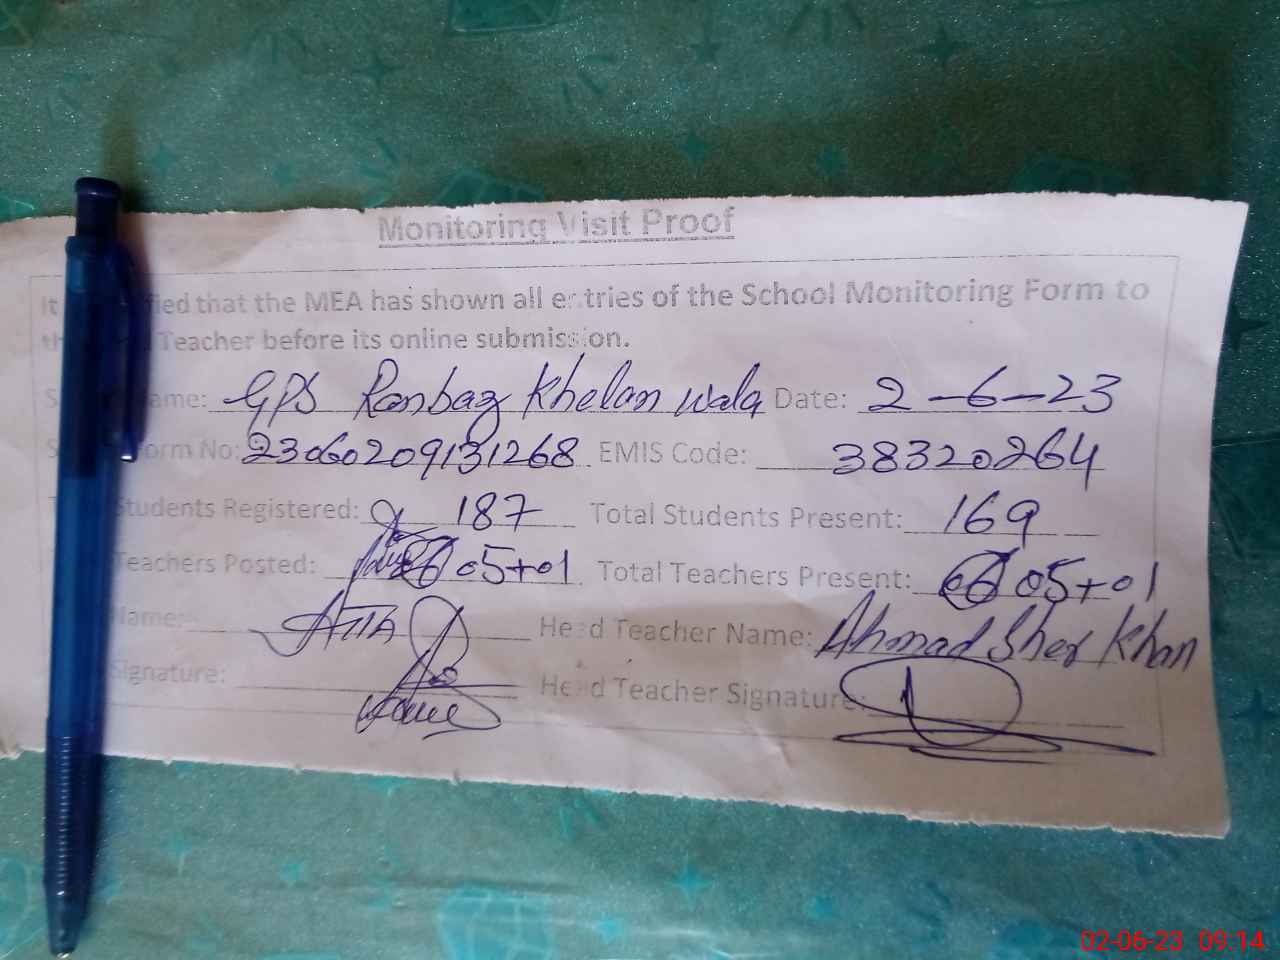 Monitoring Visit Proof
It fied that the MEA has shown all entries of the School Monitoring Form to
th Teacher before its online submission.
S ame: GPS Ranbaz Khelan wala Date: 2-6-23
S orm No: 23060209131268 EMIS Code: 38320264
Students Registered: 187 Total Students Present: 169
Teachers Posted: 05+01 Total Teachers Present: 06 05+01
Name: Head Teacher Name: Ahmad Sher Khan
Signature: Head Teacher Signature:
02-06-23 09:14